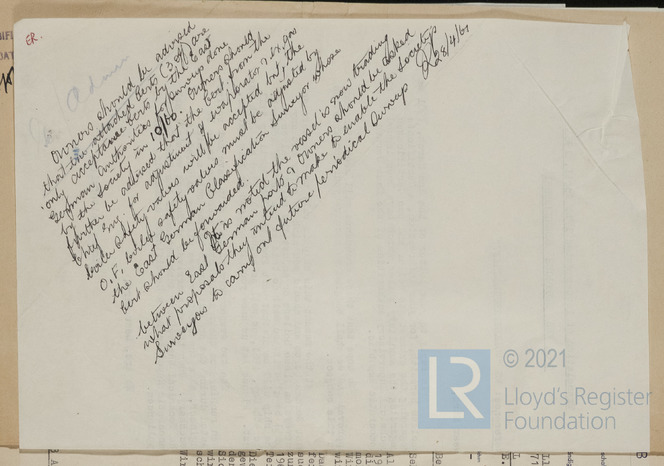 ER.
Owners should be advised
that the attached Certs (3 off) are
only acceptance Certs by the East
German Authorities for survey done
by the Society in 10/60. Owners should
further be advised that the Cert from the
Chief Eng. for adjustment of evaporator & ex. gas
boiler safety valves will be accepted but the
O.F. boiler safety valves must be adjusted by
the East German Classification Surveyor whose
Cert should be forwarded.
It is noted the vessel is now trading
between East German ports & owners should be asked
what proposals they intend to make to enable the Society's
Surveyors to carry out future periodical surveys
28/4/61
LR
© 2021
Lloyd's Register
Foundation